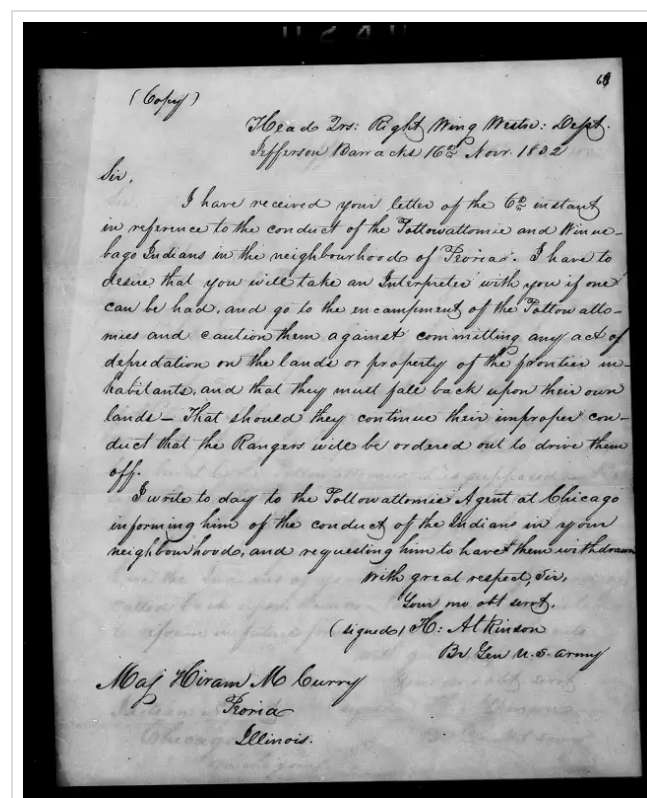 69
(Copy)
Head Qrs: Right Wing Westn: Dept.
Jefferson Barracks 16th Novr. 1832
Sir,
I have received your letter of the 6th instant
in reference to the conduct of the Pottowattomie and Winne-
bago Indians in the neighbourhood of Peoria. I have to
desire that you will take an Interpreter with you if one
can be had, and go to the encampment of the Pottowatto-
mies and caution them against committing any act of
depredation on the lands or property of the frontier in-
habitants, and that they must fale back upon their own
lands – That should they continue their improper con-
duct that the Rangers will be ordered out to drive them
off.
I write to day to the Pottowattomie Agent at Chicago
informing him of the conduct of the Indians in your
neighbourhood, and requesting him to have them withdrawn
With great respect, Sir,
Your mo obt servt,
(signed) H: Atkinson
Br Gen U.S. army
Maj Hiram M Curry
Peoria
Illinois.